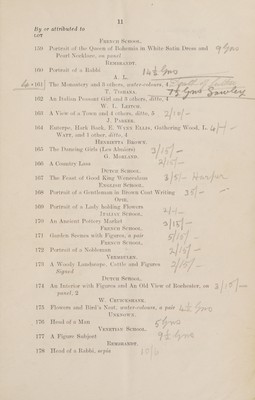 11
By or attributed to
LOT
FRENCH SCHOOL.
159 Portrait of the Queen of Bohemia in White Satin Dress and Pearl Necklace, on panel 9 gns
REMBRANDT.
160 Portrait of a Rabbi 14½ gns
A. L.
161 The Monastery and 3 others, water-colours, 4
7½ gns Sawley
T. TOMKINS.
162 An Indian Peasant Girl and 3 others, ditto, 4
W. L. LEITCH.
163 A View of a Town and 4 others, ditto, 5 2/10/-
J. PARKER.
164 Euterpe, Hark Back, E. WANE ELLIS, Gathering Wood, L. WATT, and 1 other, ditto, 4 4/-/-
HENRIETTA BROWN.
165 The Dancing Girls (Les Almées) 3/15/-
G. MORLAND.
166 A Country Lass 2/15/-
DUTCH SCHOOL.
167 The Feast of Good King Wenceslaus 3/5/- Harper
ENGLISH SCHOOL.
168 Portrait of a Gentleman in Brown Coat Writing 35/-
OPIE.
169 Portrait of a Lady holding Flowers
ITALIAN SCHOOL.
170 An Ancient Pottery Market 3/15/-
FRENCH SCHOOL.
171 Garden Scenes with Figures, a pair 5/15/-
FRENCH SCHOOL.
172 Portrait of a Nobleman 2/15/-
VERMEULEN.
173 A Woody Landscape, Cattle and Figures 2/15/-
Signed
DUTCH SCHOOL.
174 An Interior with Figures and An Old View of Rochester, on panel, 2
W. CRUICKSHANK.
175 Flowers and Bird's Nest, water-colours, a pair 4½ gns
UNKNOWN.
176 Head of a Man 5 gns
VENETIAN SCHOOL.
177 A Figure Subject 9½ gns
REMBRANDT.
178 Head of a Rabbi, sepia